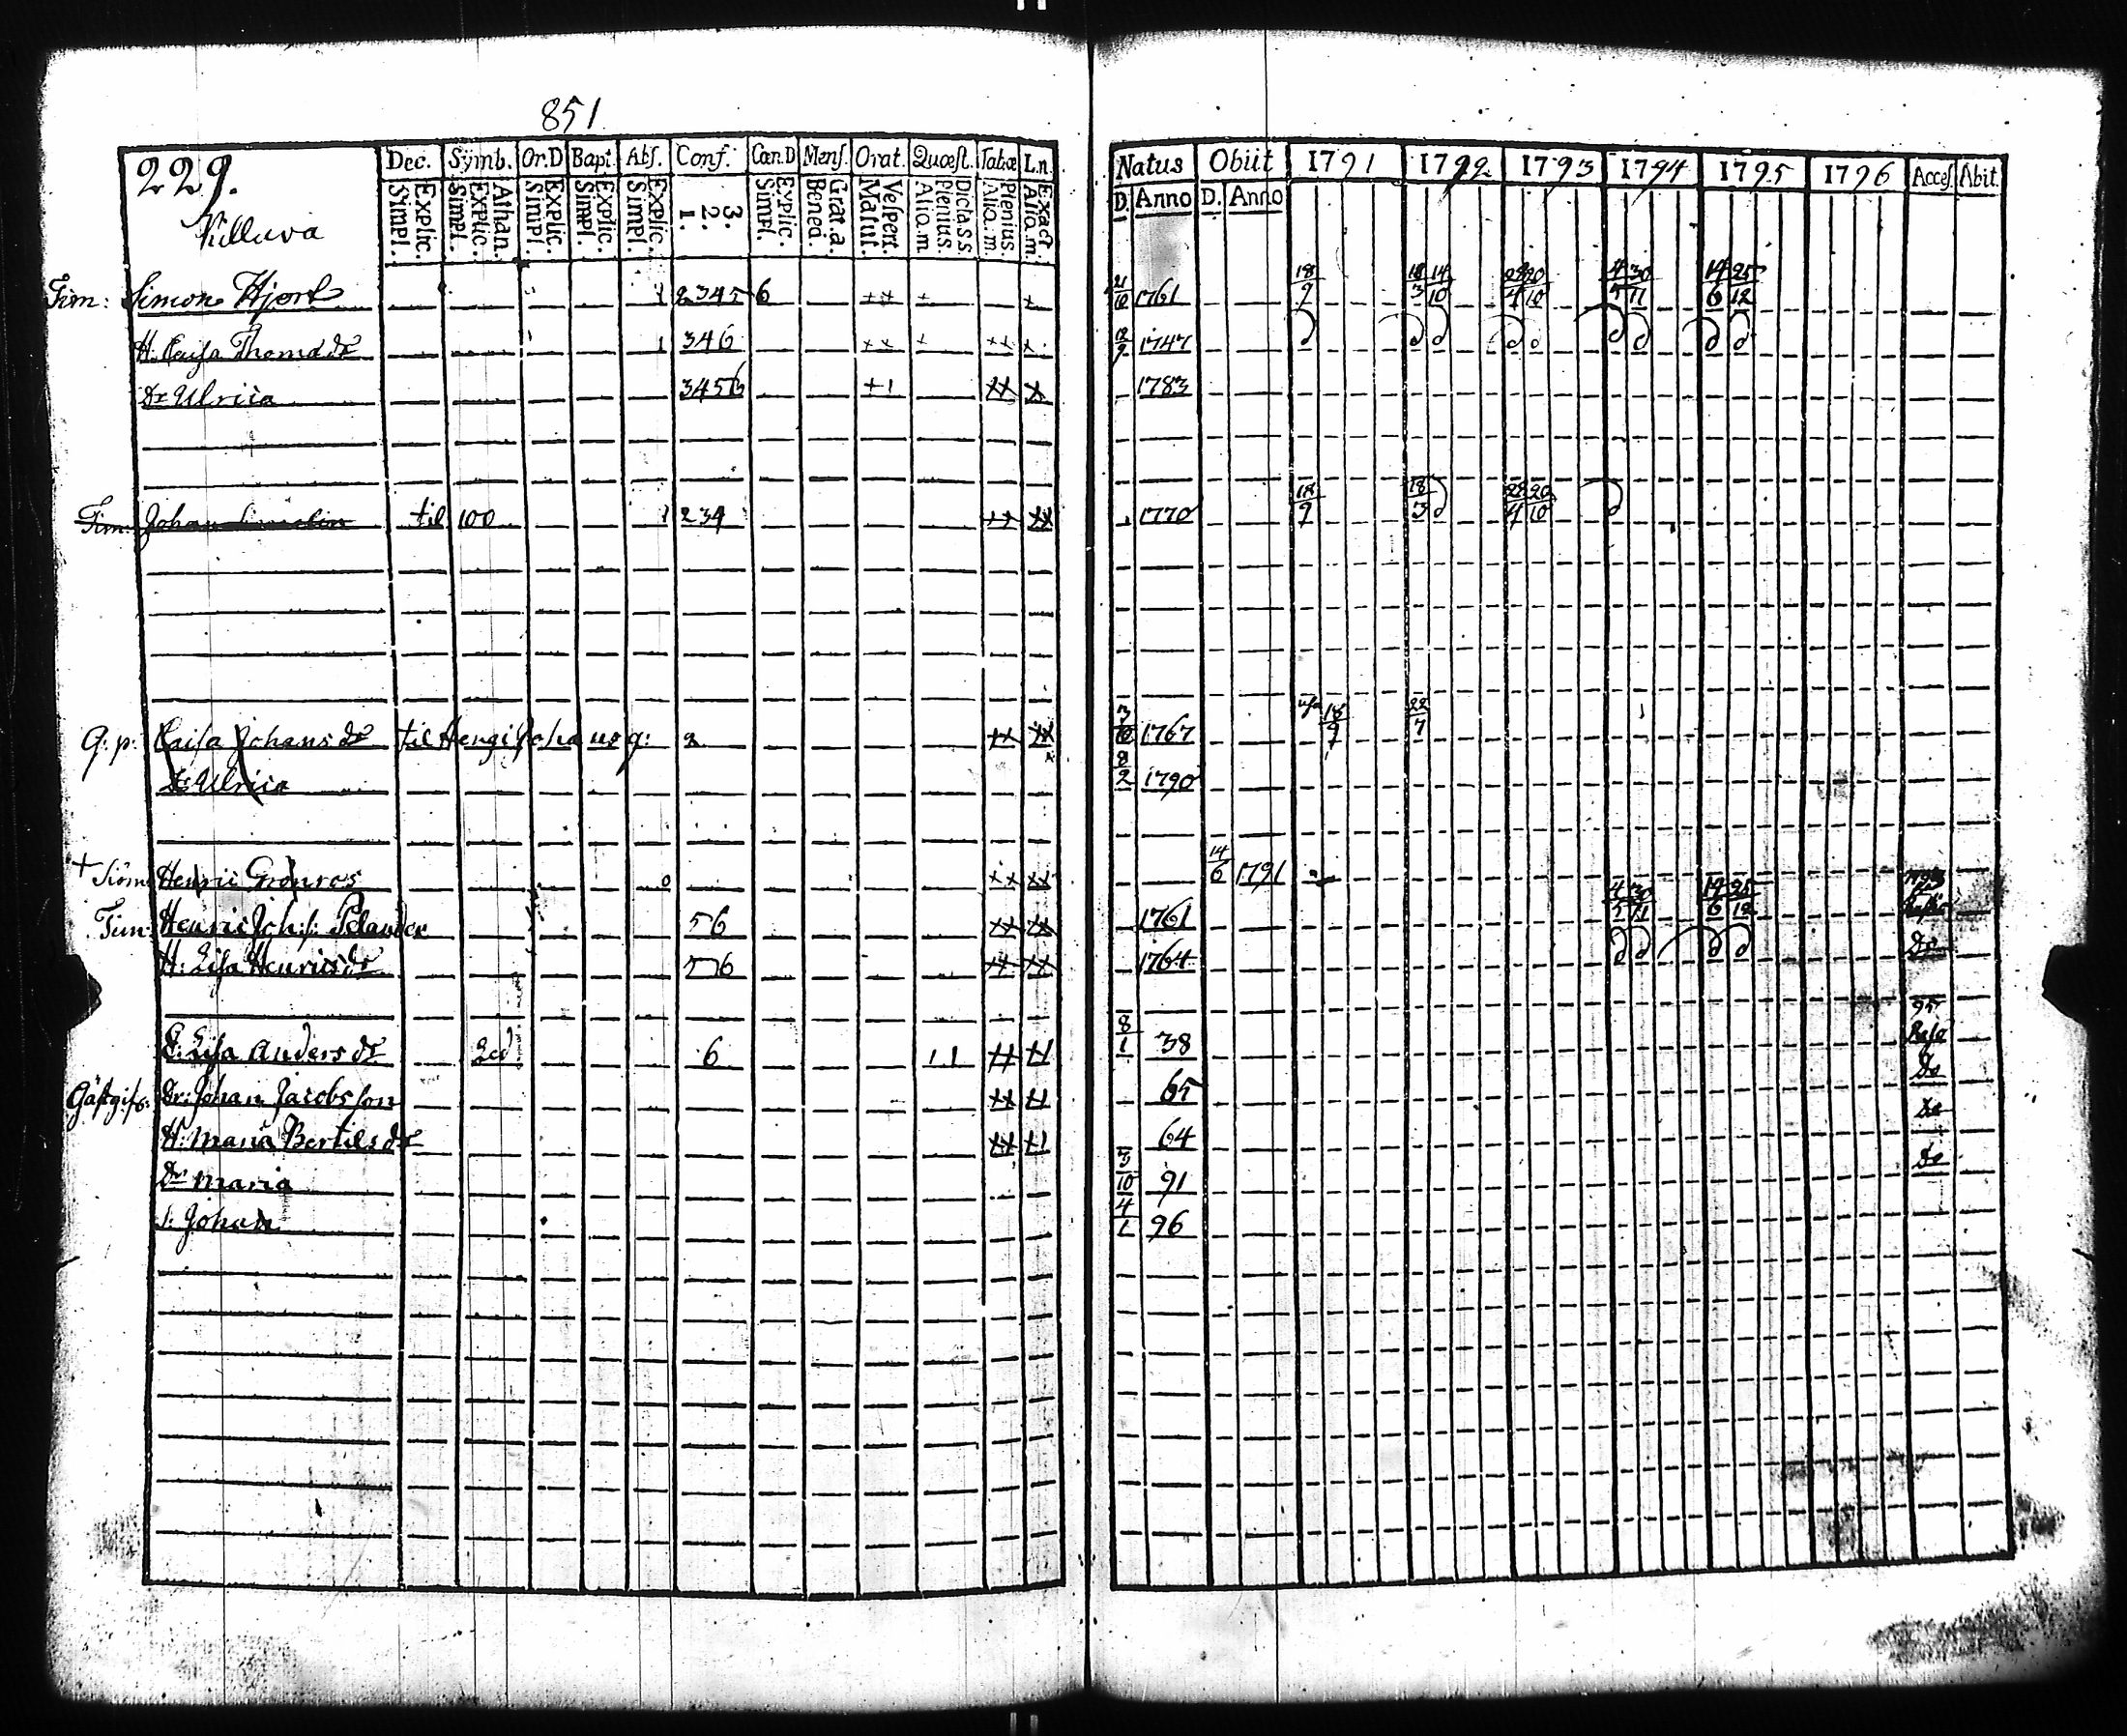 851
229.
Dec. Symb. Or.D Bapt. Abs. Conf. Cœn.D Mens. Orat. Quœst. Tabœ L.n.
Explic. Simpl. Athan. Explic. Simpl. Explic. Simpl. Explic. Simpl. Explic. Simpl. 3. 2. 1. Explic. Simpl. Grat.a. Bened. Vespert. Matut. Dicta.s.s. Plenius. Aliq.m. Plenius. Aliq.m. Exact Aliq.m.
Natus Obiit 1791 1792 1793 1794 1795 1796 Acces. Abit.
D. Anno D. Anno
Killuva
Tim: Simon Hjort 1 2345 6 ++ + + 21/12 1761 18/9 18/3 14/10 28/4 20/10 4/5 30/11 14/6 25/12
H. Caisa Thomæ dr 1 346 ++ + ++ + 12/9 1747
Dr Ulrica 3456 +1 ++ + 1783
Tim: Johan til 100 1 234 ++ ++ 1770 18/9 18/3 28/4 20/10
Q: p: Caisa Johans dr til 2 ++ ++ 3/10 1767 18/9 22/7
Dr Ulrica 8/2 1790
+ Henric Grönros 0 ++ ++ 14/6 1791
Tim: Henric Joh:s: Pelander 56 ++ ++ 1761 4/5 30/11 14/6 25/12 1793
H: Lisa Henrics dr 56 ++ ++ 1764 Do
Lisa Anders dr 6 11 ++ ++ 8/1 38 95
Gästgifv: Dr: Johan Jacobsson ++ ++ 65 Do
H: Maria Bertils dr ++ ++ 64 Do
Dr Maria 3/10 91 Do
S: Johan 4/1 96